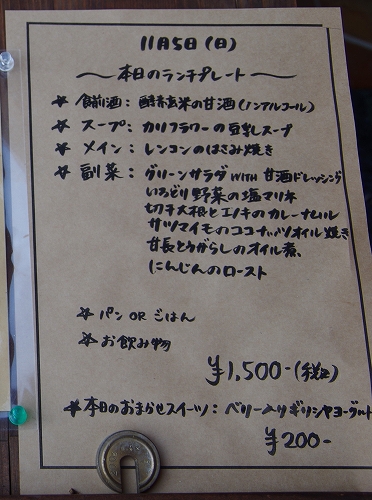 11月5日(日)
〜本日のランチプレート〜
☆ 食前酒: 酵素玄米の甘酒(ノンアルコール)
☆ スープ: カリフラワーの豆乳スープ
☆ メイン: レンコンのはさみ焼き
☆ 副菜: グリーンサラダ WITH 甘酒ドレッシング
いろどり野菜の塩マリネ
切干大根とエノキのカレーナムル
サツマイモのココナッツオイル焼き
甘長とうがらしのオイル煮、
にんじんのロースト
☆ パン OR ごはん
☆ お飲み物
¥1,500-(税込)
☆本日のおまかせスイーツ: ベリー入りギリシャヨーグルト
¥200-